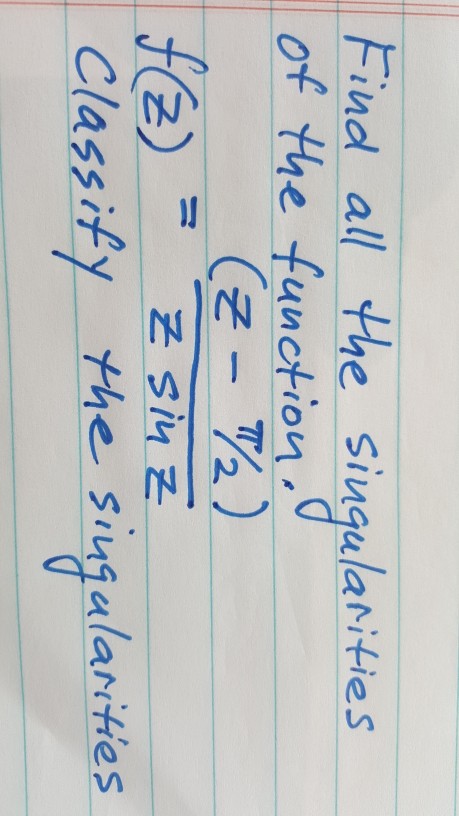 Find all the singularities
of the function.
f(z) = (z - π/2) / z sin z
Classify the singularities